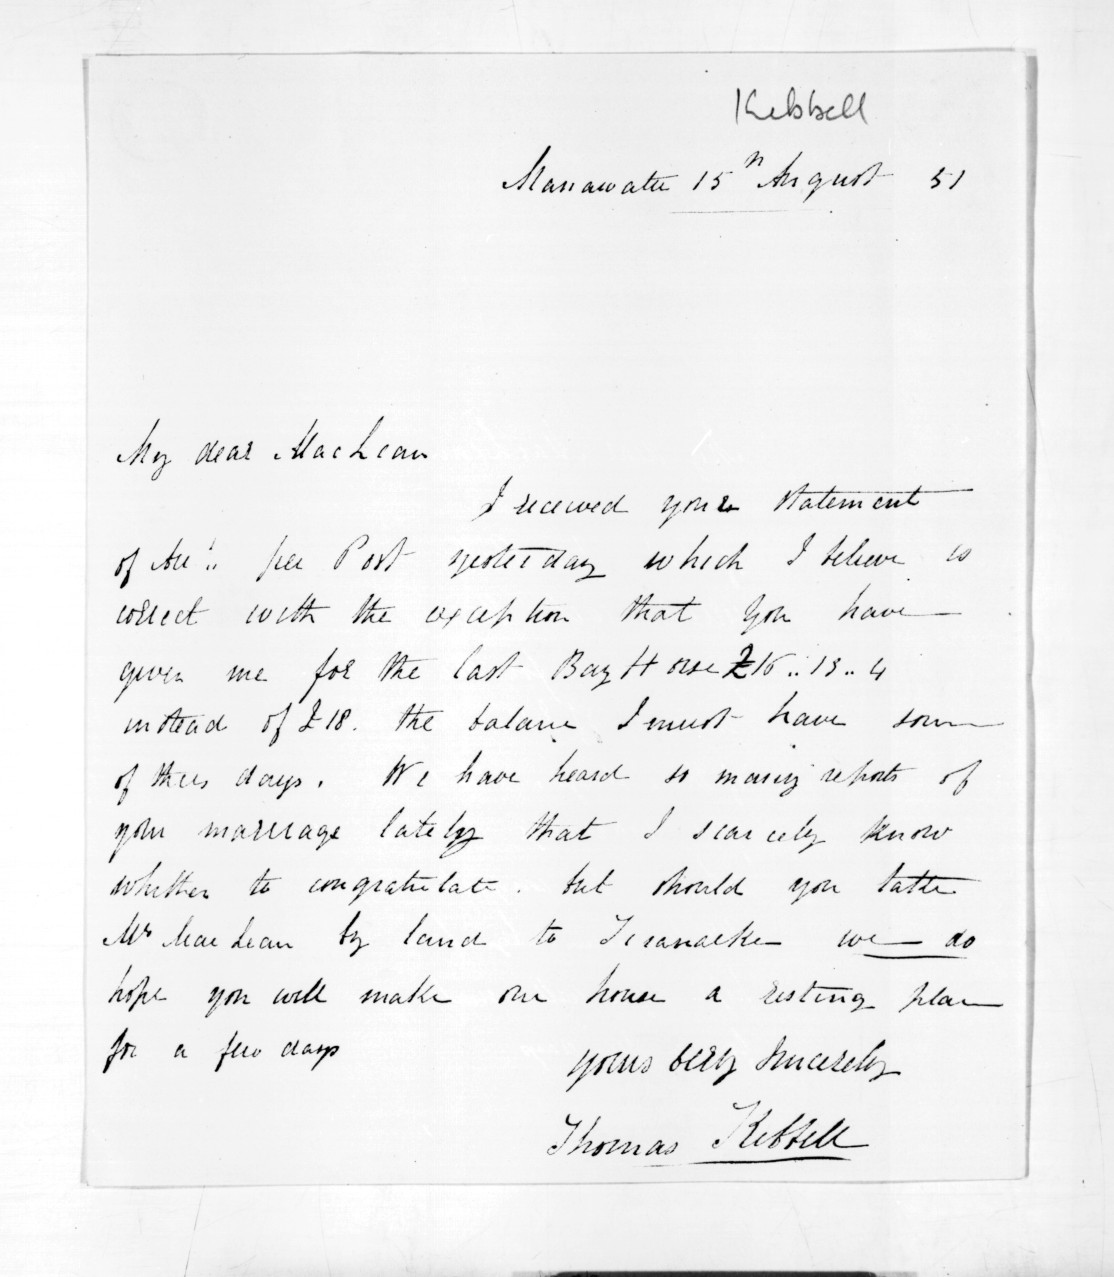 Kebbell
Manawatu 15th August 51
My dear MacLean
I received your statement
of Acct. per Post yesterday which I believe is
correct with the exception that you have
given me for the last Bay Horse £16..13..4
instead of £18. the balance I must have some
of these days. We have heard so many reports of
your marriage lately that I scarcely know
whether to congratulate. but should you take
Mrs MacLean by land to Taranaki we do
hope you will make our house a resting place
for a few days
yours very sincerely
Thomas Kebbell